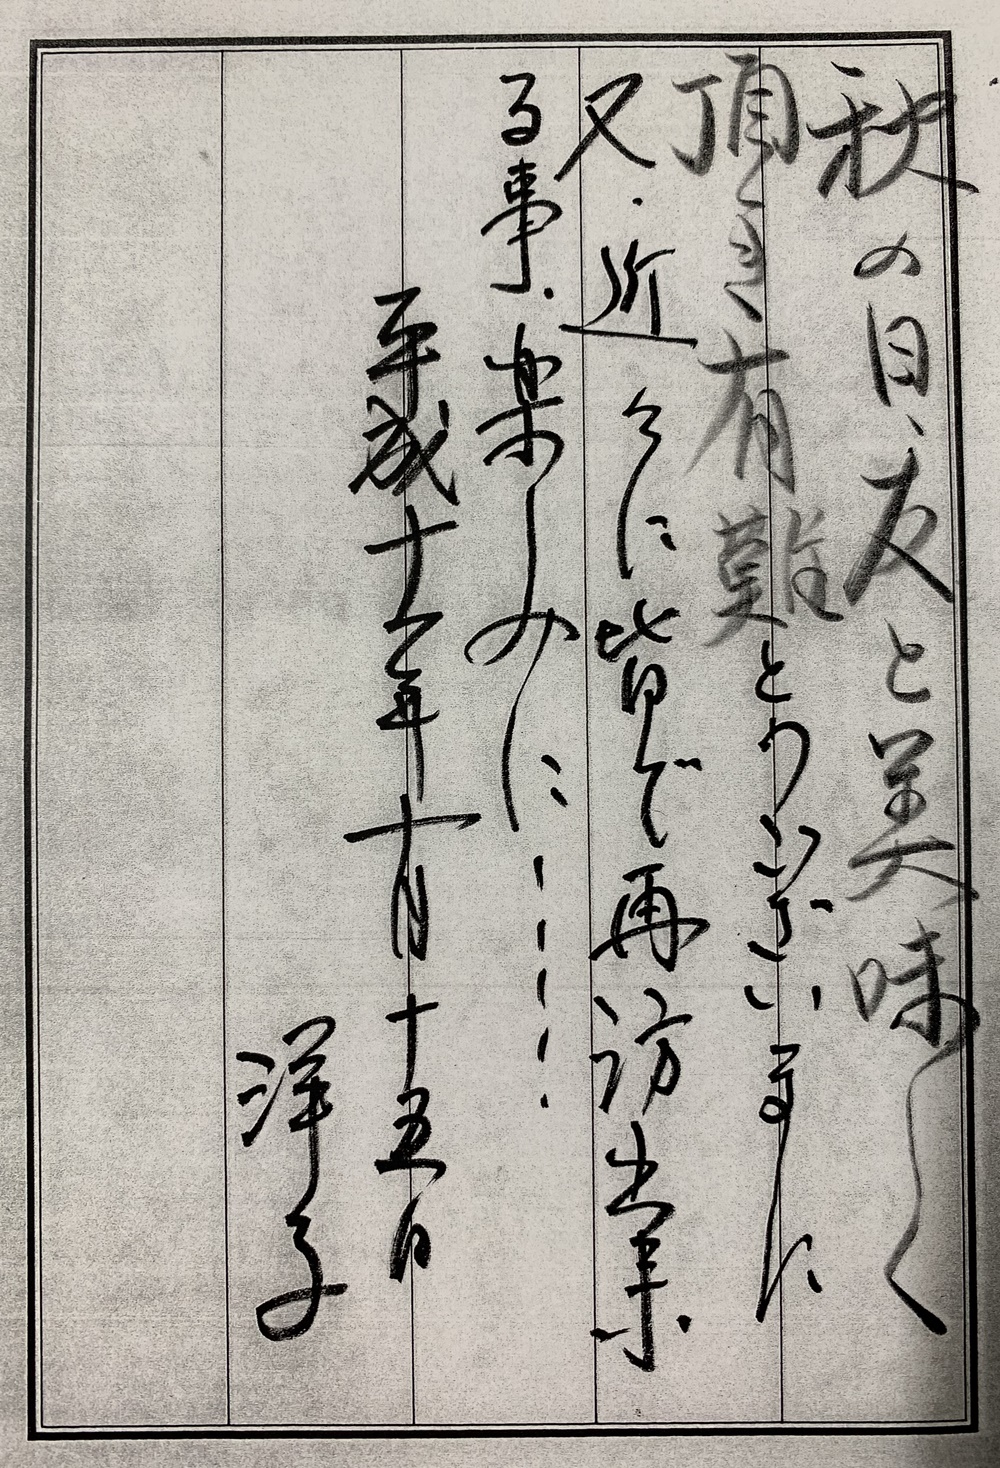 秋の日、友と美味しく
頂き有難とうございました
又、近々に皆で再訪出来
る事、楽しみに・・・・・
平成十六年十月十五日
洋子